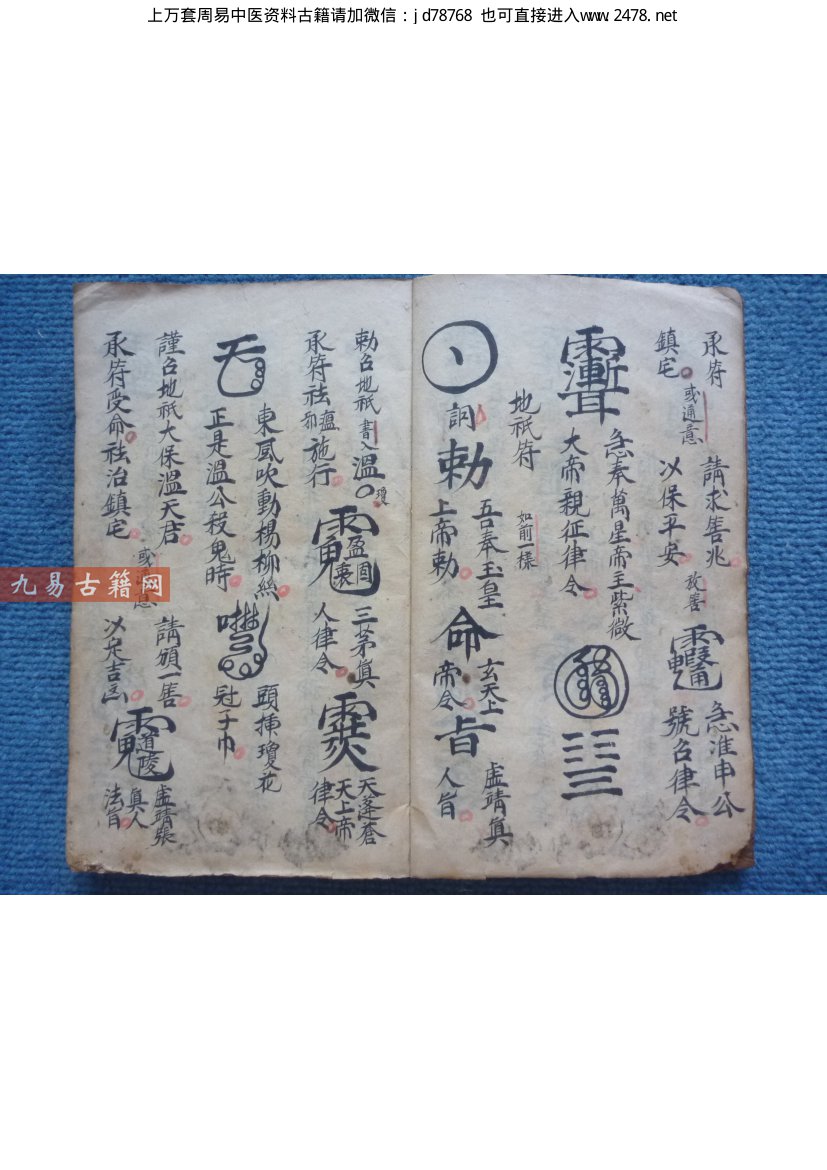 上万套周易中医资料古籍请加微信：jd78768 也可直接进入www.2478.net
承符 請求善兆
鎮宅 或通意 以保平安 故善
急准申公
號召律令
急奉萬星帝主紫微
大帝親征律令
地祇符 如前一樣
吾奉玉皇
上帝勅
玄天上
帝令
虛靖真
人旨
詞
勅
命
旨
勅召地祇 書入 溫 瓊
承符祛瘟 施行
三茅真
人律令
天蓬蒼
天上帝
律令
東風吹動楊柳絲 頭揷瓊花
正是溫公殺鬼時 冠子巾
謹召地祇大保溫天君 或通意 請頒一善
承符受命祛治鎮宅 以定吉凶
道陵
虛靖張
真人
法旨
九易古籍网